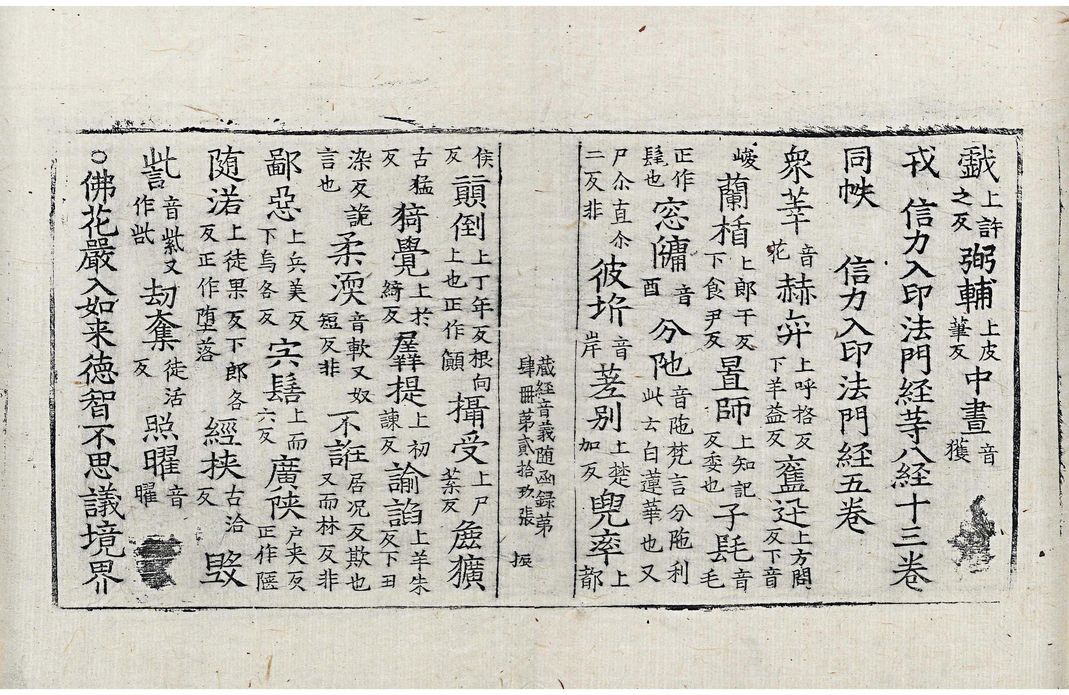 戯上許之反弼輔上皮筆反中晝音獲
戎 信力入印法門経等八経十三巻
同帙 信力入印法門経五巻
衆莘音花赫弈上呼挌反下羊益反舊迋上方閏反下音
峻蘭楯上郎干反下食尹反置師上知記反委也子毦音毛
正作肆也窓牗音酉分阤音陁梵言分陁利此云白蓮華也又
尸尒直尒二反非彼坋音岸荖别上楚加反兜率上都
藏経音義随函録第肆冊第貳拾玖張 振
侯反顗倒上丁年反根向上也正作顛攝受上尸葉反麁獷
古猛反猗覺上於綺反羼提上初諫反諭諂上羊朱反下丑
染反詭言也柔渜音軟又奴短反非不誑居况反欺也又而林反非
鄙惡上兵美反下烏各反宍髻上而六反廣陜户夹反正作陿
随渃上徒果反下郎各反正作堕落經挟古洽反毀
訾音紫又作呰刧奪徒活反照曜音曜
○佛花嚴入如来徳智不思議境界